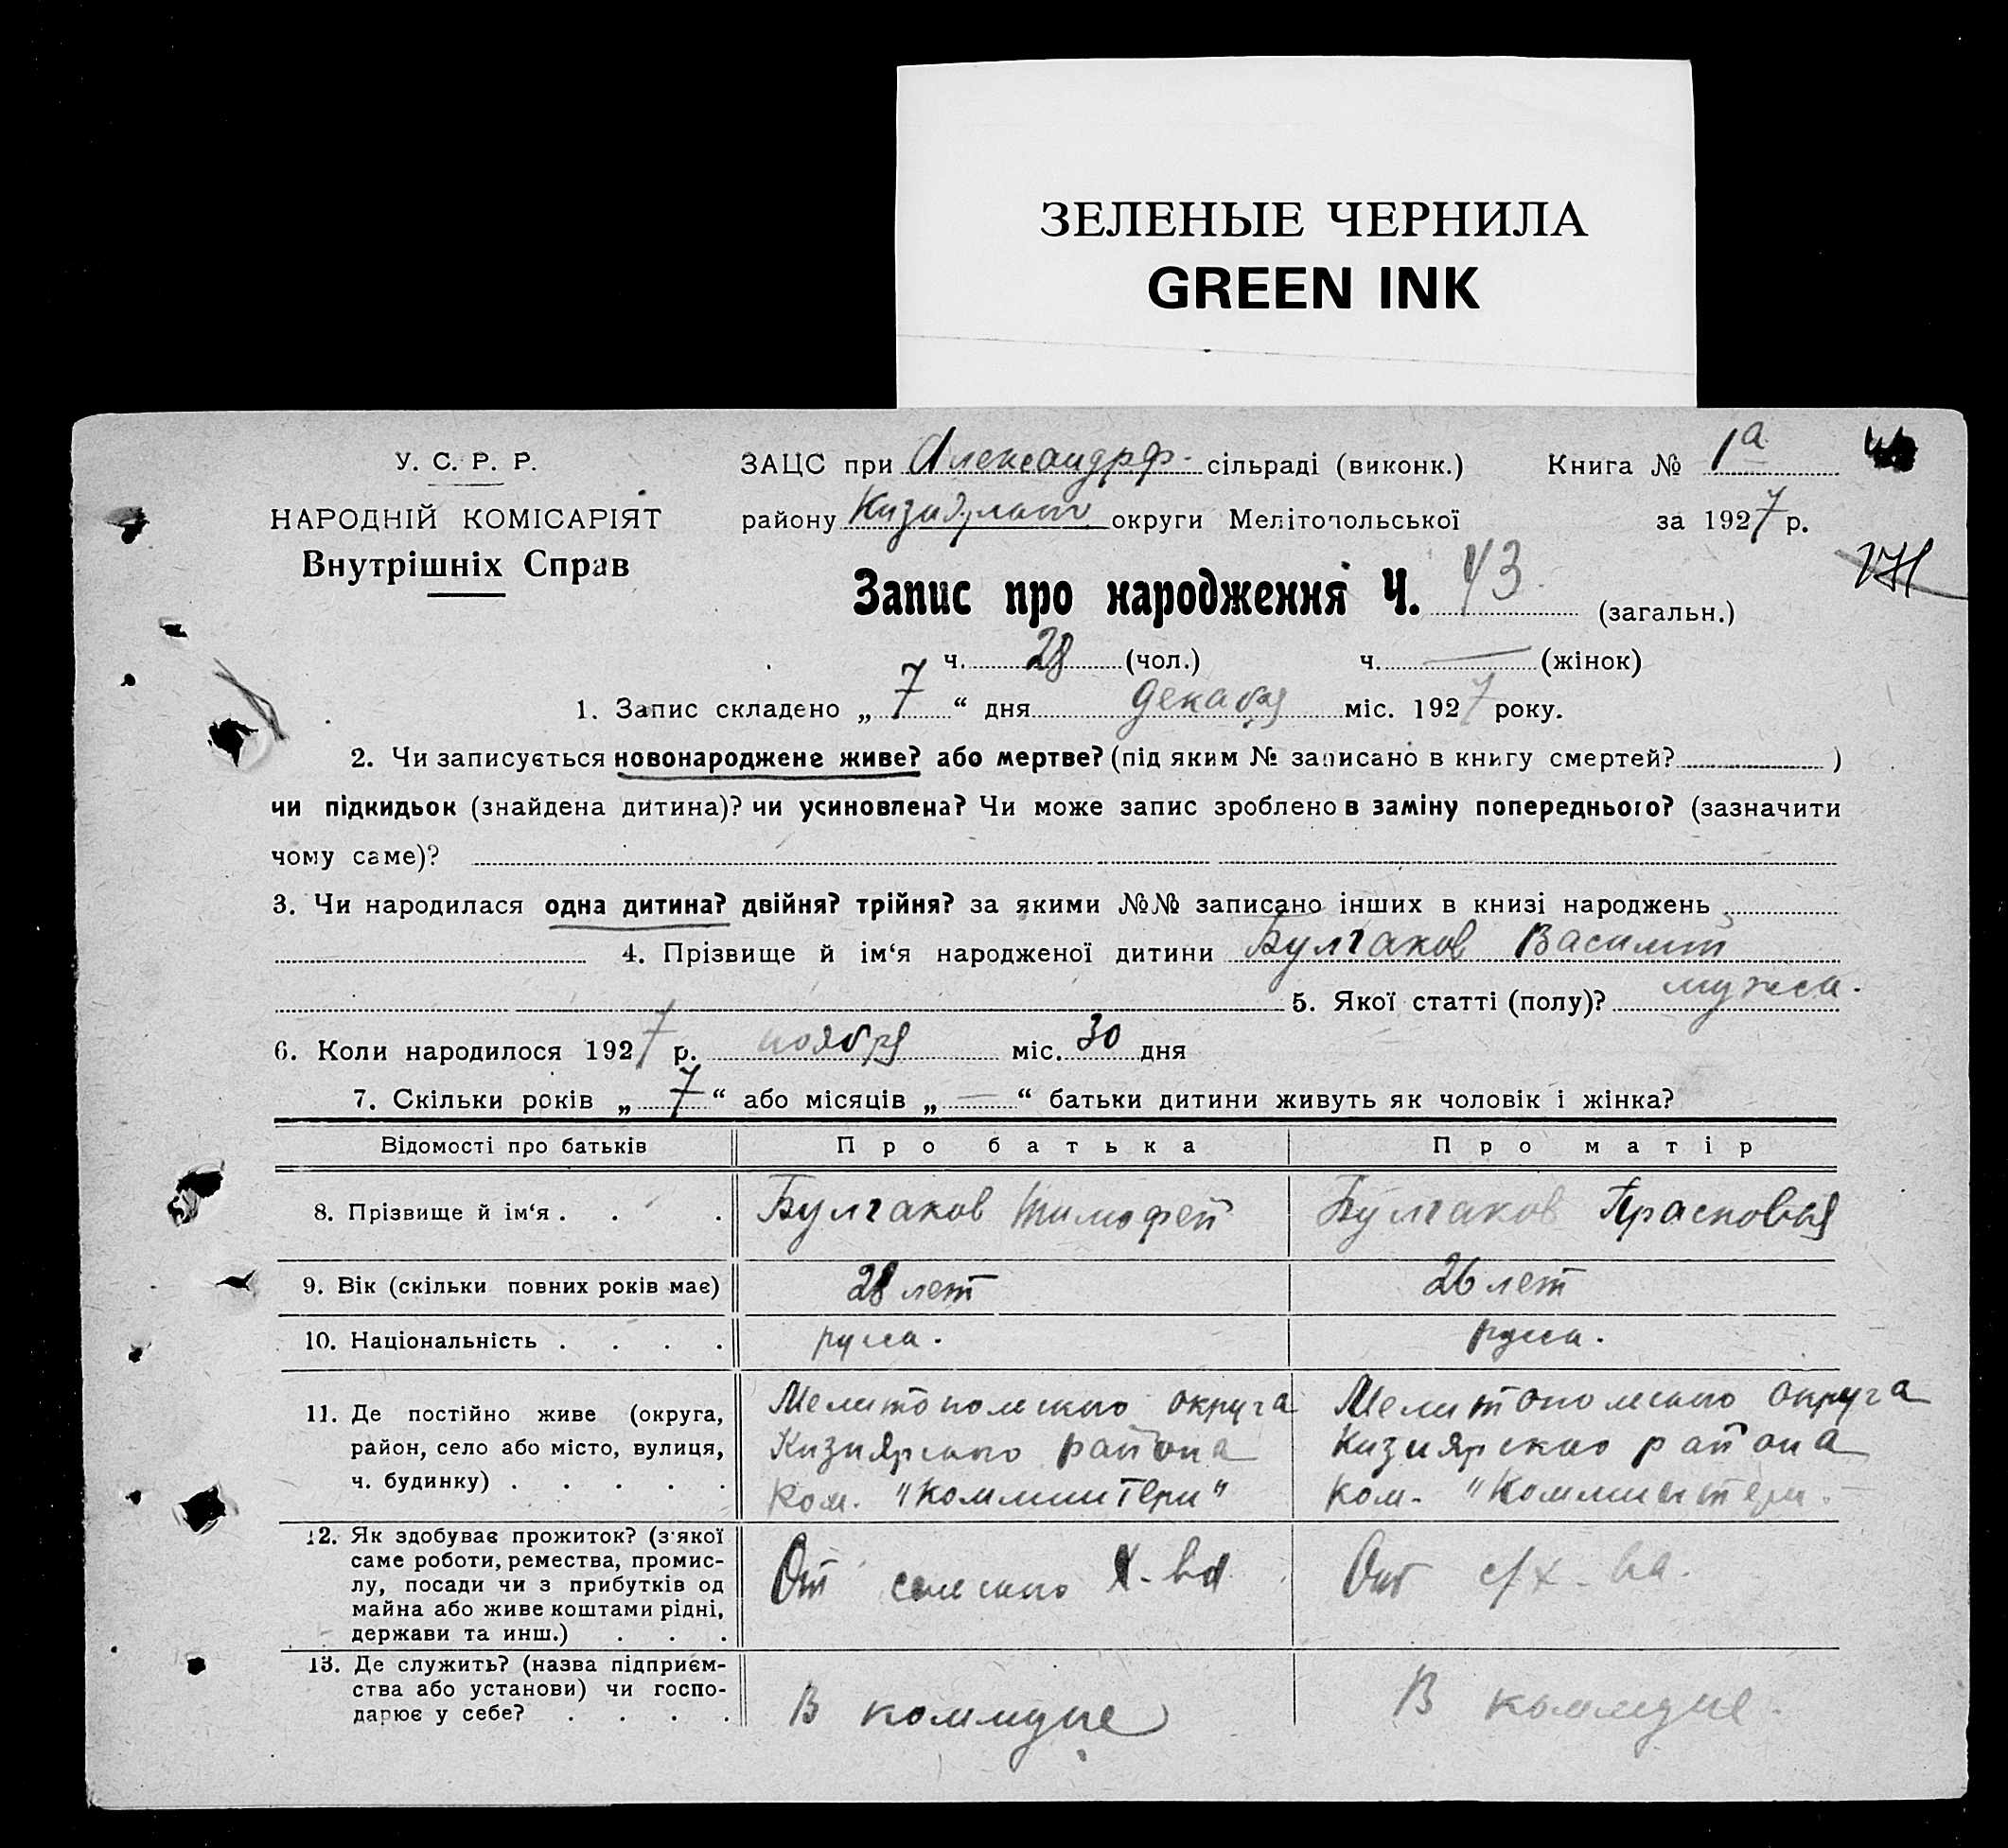 ЗЕЛЕНЫЕ ЧЕРНИЛА
GREEN INK
У. С. Р. Р.
НАРОДНІЙ КОМІСАРІЯТ
Внутрішніх Справ
ЗАЦС при Александрф. сільраді (виконк.) Книга № 1а
району округи Мелітопольської за 1927 р.
Запис про народження Ч. 43 (загальн.)
ч. 28 (чол.) ч. — (жінок)
1. Запис складено „ 7 “ дня декабря міс. 1927 року.
2. Чи записується новонароджене живе? або мертве? (під яким № записано в книгу смертей? )
чи підкидьок (знайдена дитина)? чи усиновлена? Чи може запис зроблено в заміну попереднього? (зазначити
чому саме)?
3. Чи народилася одна дитина? двійня? трійня? за якими №№ записано інших в книзі народжень
4. Прізвище й ім‘я народженої дитини Булгаков Василий
5. Якої статті (полу)? мужск.
6. Коли народилося 1927 р. ноября міс. 30 дня
7. Скільки років „ 7 “ або місяців „ — “ батьки дитини живуть як чоловік і жінка?
Відомості про батьків Про батька Про матір
8. Прізвище й ім‘я . . . Булгаков Тимофей Булгаков Прасковья
9. Вік (скільки повних років має) 28 лет 26 лет
10. Національність . . . . русск. русск.
11. Де постійно живе (округа, Мелитопольского округа Мелитопольского округа
район, село або місто, вулиця, Кизиярского района Кизиярского района
ч. будинку) . . . . . Ком. "Комминтерн" Ком. "Коммиинтерн.
12. Як здобуває прожиток? (з‘якої
саме роботи, ремества, промис-
лу, посади чи з прибутків од От сельского х-ва От с/х-ва.
майна або живе коштами рідні,
держави та инш.) . . .
13. Де служить? (назва підприєм-
ства або установи) чи госпо- В коммуне В коммуне.
дарює у себе? . . . .